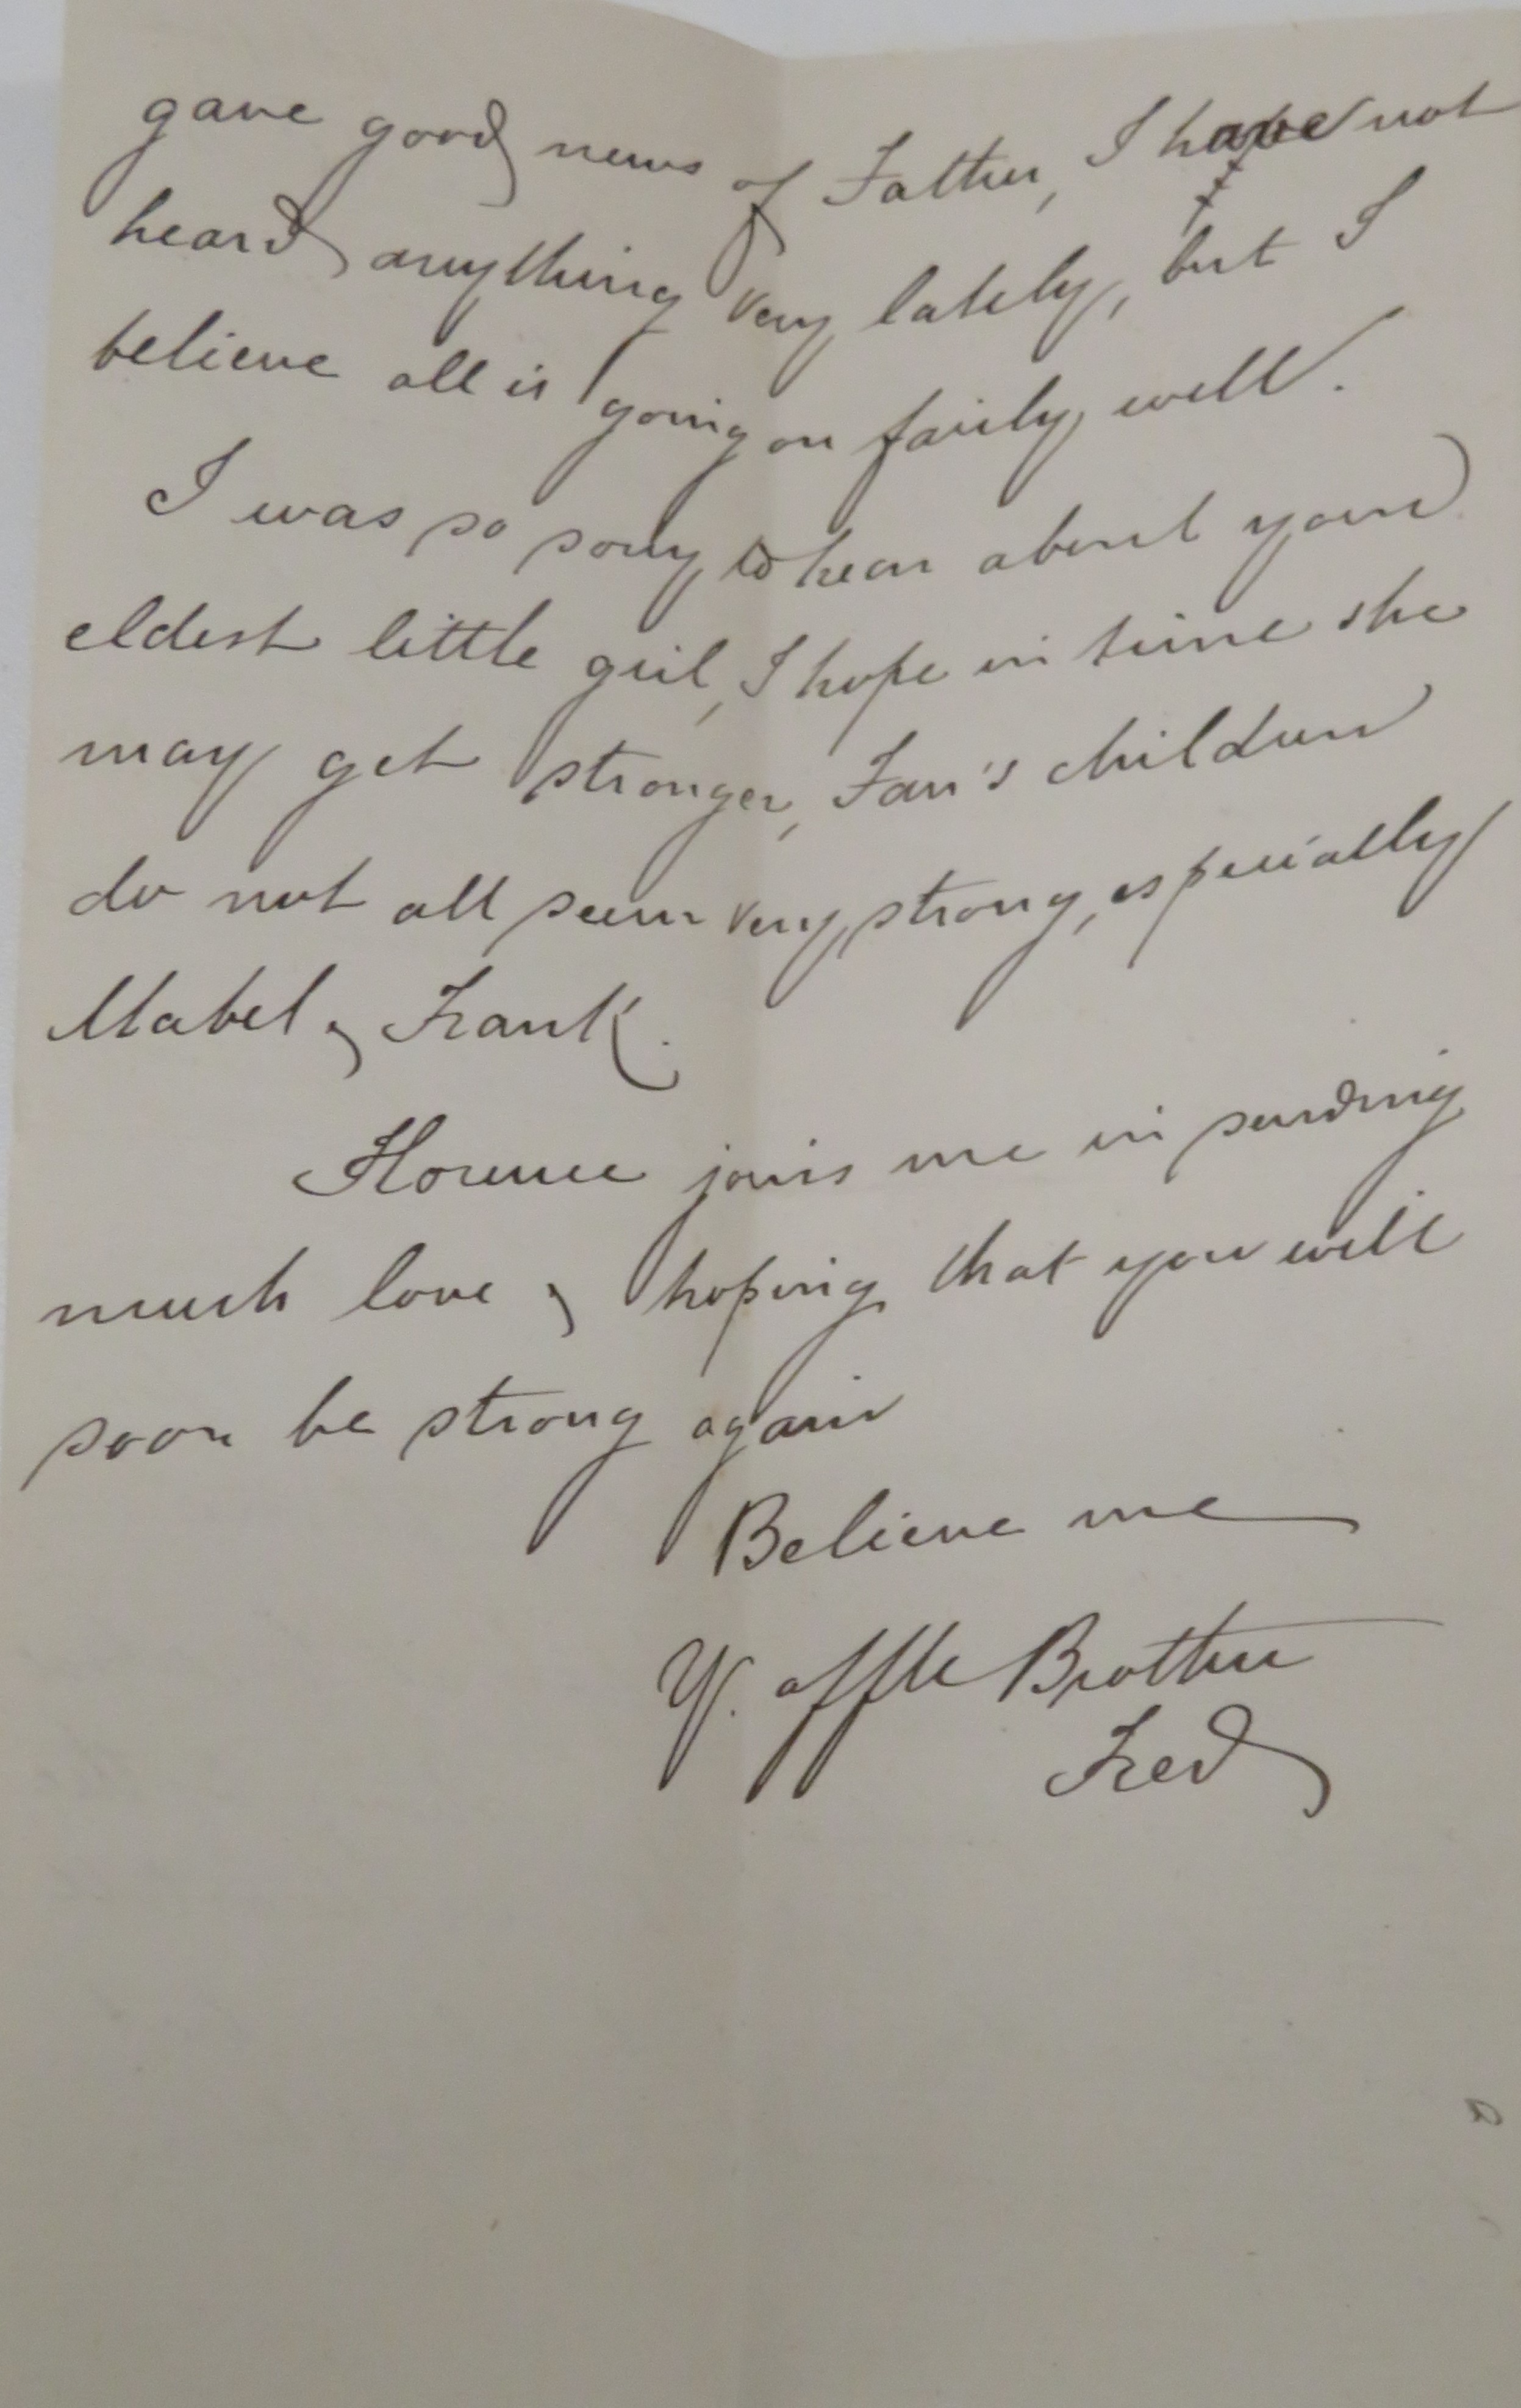 gave good news of Father, I have not
heard anything very lately, but I
believe all is going on fairly well.
I was so sorry to hear about your
eldest little girl, I hope in time she
may get stronger, Fan's children
do not all seem very strong, especially
Mabel & Frank.
Florence joins me in sending
much love & hoping that you will
soon be strong again
Believe me
Yr. affte Brother
Fred